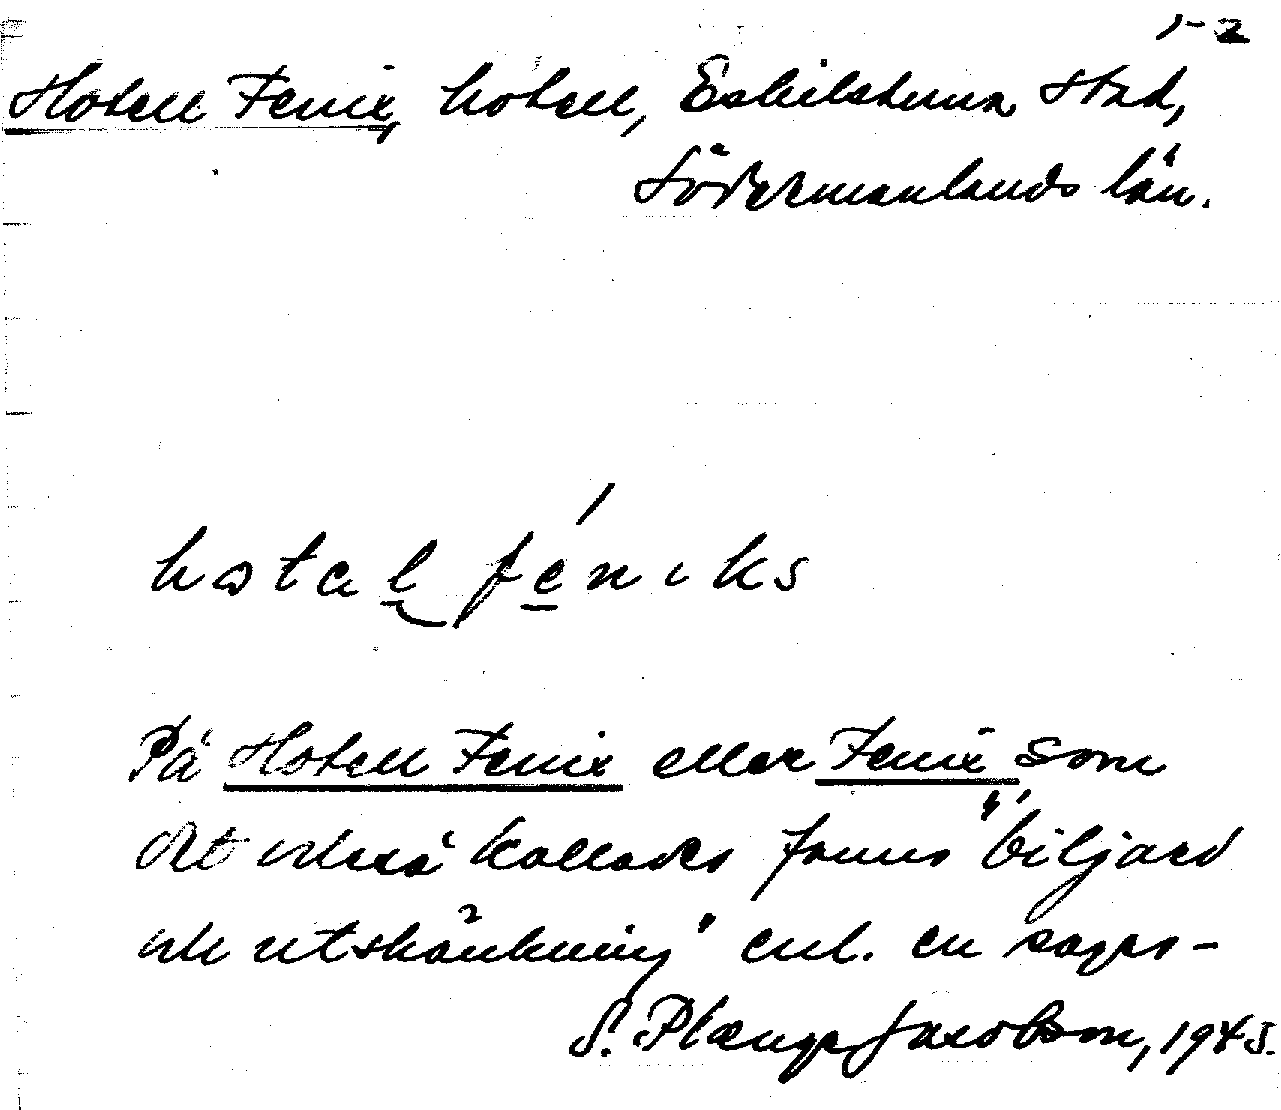 1-2
Hotell Fenix, hotell, Eskilstuna stad,
Södermanlands län.
hotel féniks
På Hotell Fenix eller Fenix som
det också kallades fanns "biljard
och utskänkning" enl. en sages-
S. Plænge Jacobson, 1945.